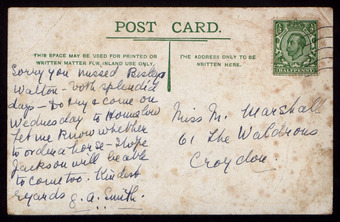 POST CARD.
THIS SPACE MAY BE USED FOR PRINTED OR
WRITTEN MATTER FOR INLAND USE ONLY.
THE ADDRESS ONLY TO BE
WRITTEN HERE.
HALFPENNY
Sorry you missed Bisley
Walton - both splendid
days - Do try & come on
Wednesday to Hounslow
Let me know whether
to order a horse - I hope
Jackson will be able
to come too. Kindest
regards G. A. Smith.
Miss M. Marshall
61 The Waldrons
Croydon.